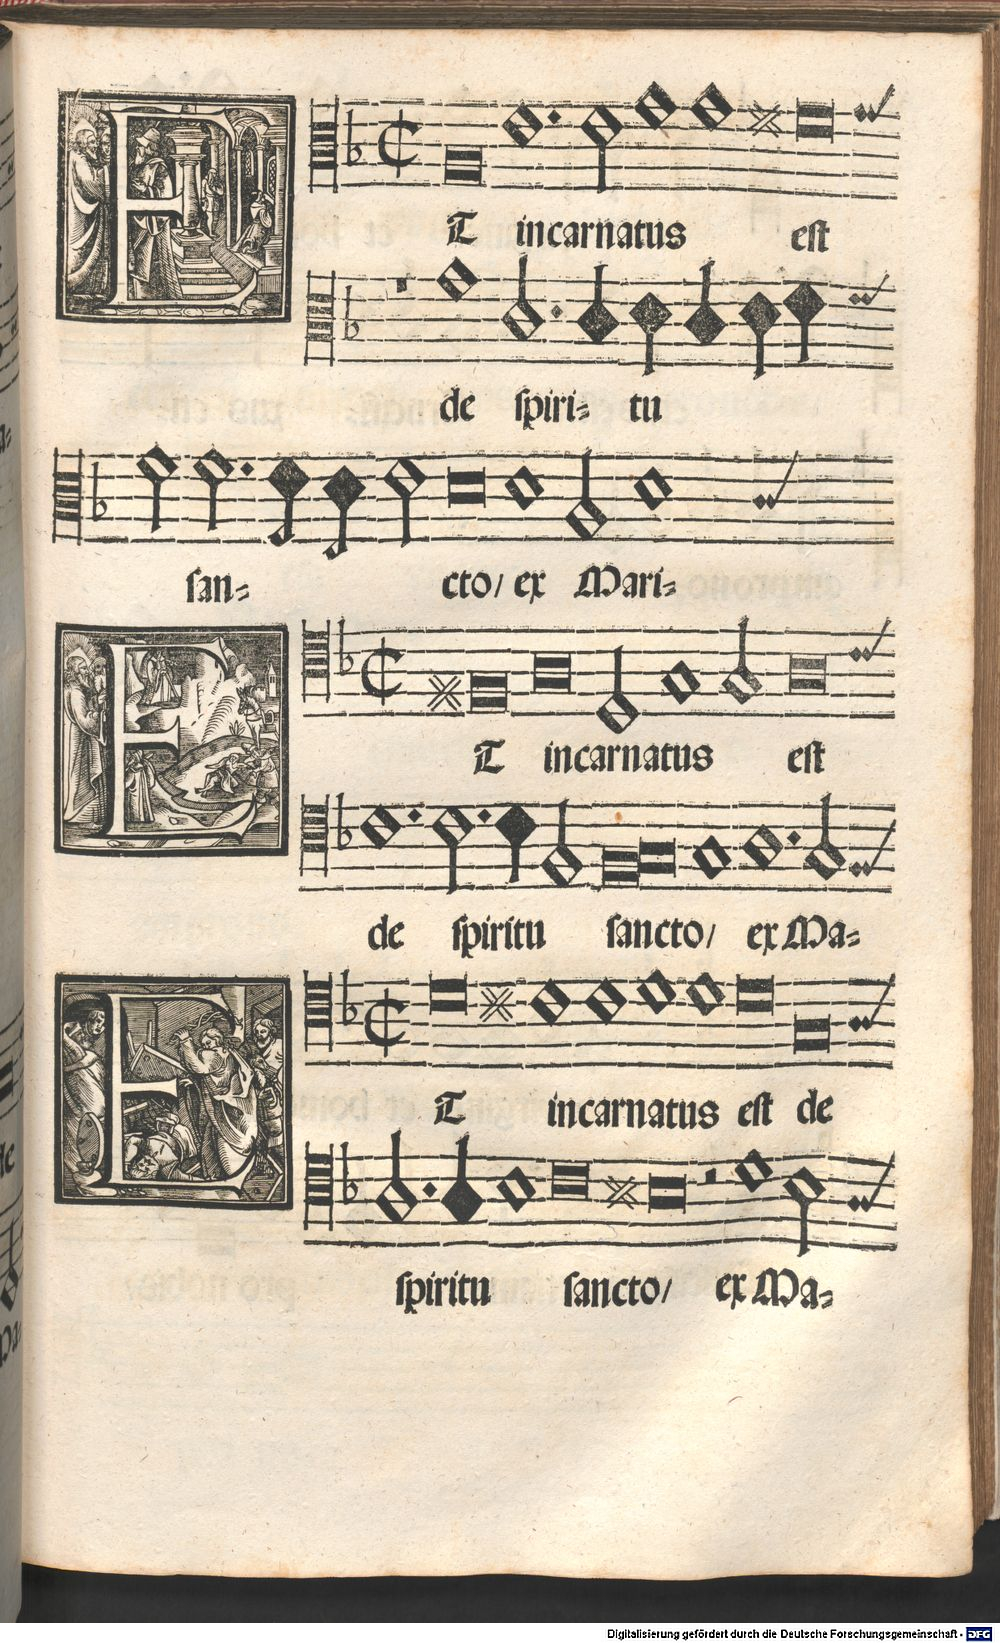 ET incarnatus est
de spiri= tu
san= cto/ ex Mari=
ET incarnatus est
de spiritu sancto/ ex Ma=
ET incarnatus est de
spiritu sancto/ ex Ma=
Digitalisierung gefördert durch die Deutsche Forschungsgemeinschaft - DFG